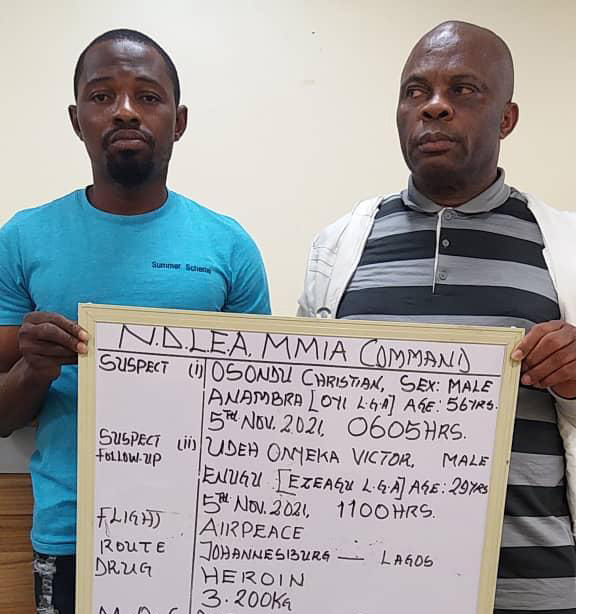 Summer Scheme
N.D.L.E.A. MMIA COMMAND
SUSPECT (i) OSONDU CHRISTIAN, SEX: MALE
ANAMBRA [OYI L.G.A] AGE: 56YRS.
5TH NOV. 2021, 0605HRS.
SUSPECT (ii) UDEH ONYEKA VICTOR, MALE
FOLLOW-UP
ENUGU [EZEAGU L.G.A] AGE: 29YRS
5TH NOV. 2021, 1100HRS.
FLIGHT AIRPEACE
ROUTE JOHANNESBURG — LAGOS
DRUG HEROIN
3.200KG